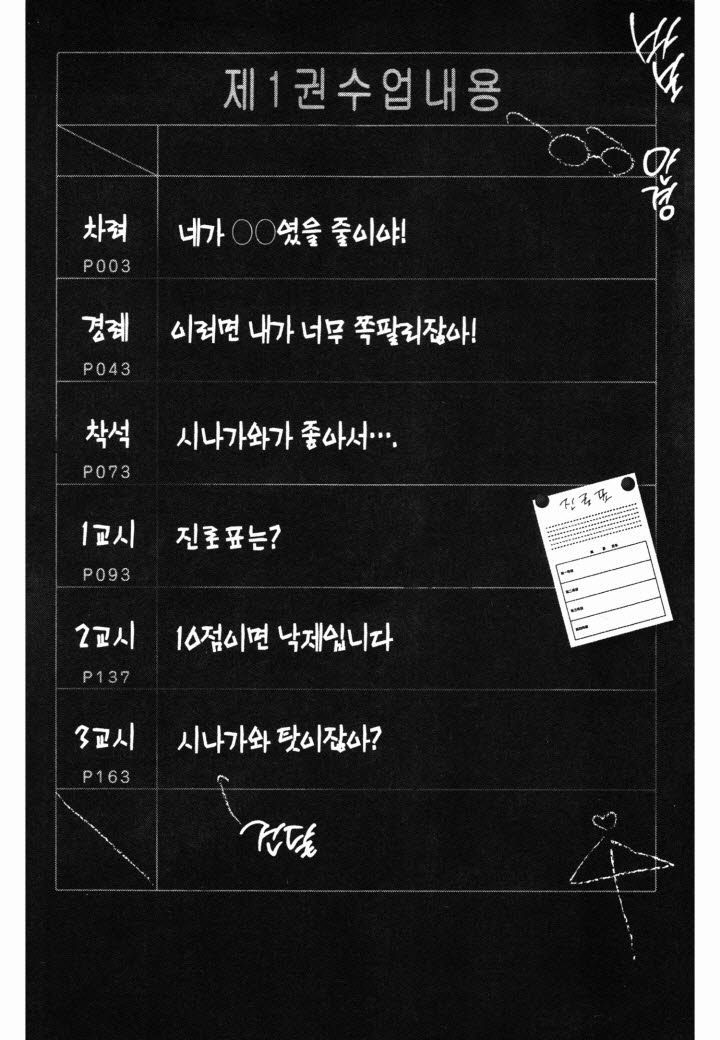 제1권수업내용
차려
P003
네가 ○○였을 줄이야!
경례
P043
이러면 내가 너무 쪽팔리잖아!
착석
P073
시나가와가 좋아서….
1교시
P093
진로표는?
2교시
P137
10점이면 낙제입니다
3교시
P163
시나가와 탓이잖아?
진로표